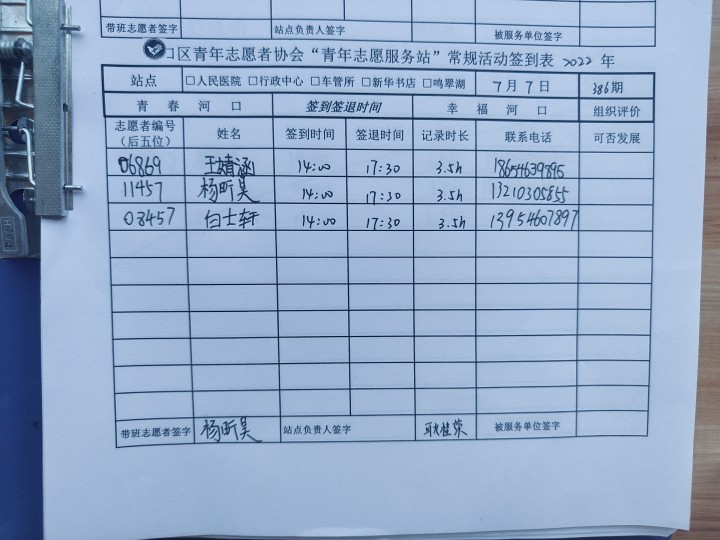 带班志愿者签字 站点负责人签字 被服务单位签字
口区青年志愿者协会“青年志愿服务站”常规活动签到表 2022 年
站点 □人民医院 □行政中心 □车管所 □新华书店 □鸣翠湖 7月7日 386期
青春河口 签到签退时间 幸福河口 组织评价
志愿者编号（后五位） 姓名 签到时间 签退时间 记录时长 联系电话 可否发展
06869 王婧涵 14:00 17:30 3.5h 18654639895
11457 杨昕昊 14:00 17:30 3.5h 13210305855
03457 白士轩 14:00 17:30 3.5h 13954607897
带班志愿者签字 杨昕昊 站点负责人签字 耿桂荣 被服务单位签字